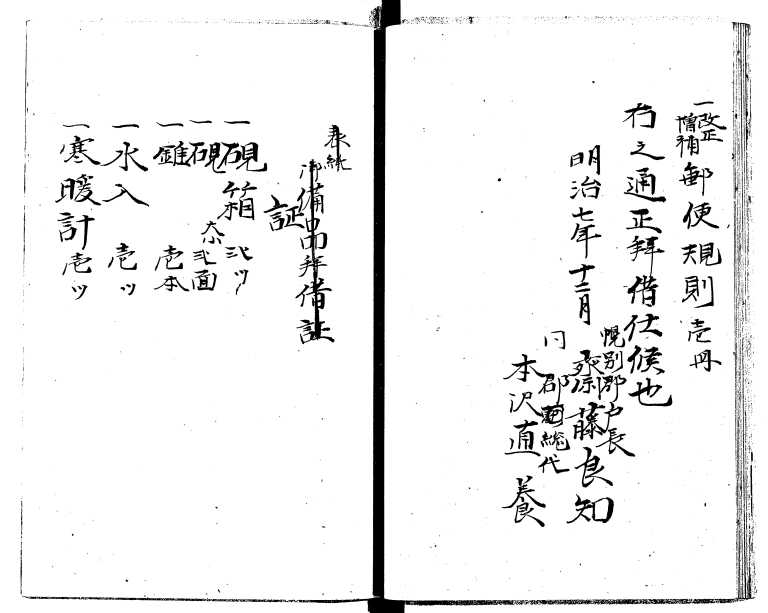 一改正増補郵便規則壱冊
右之通正拝借仕候也
明治七年十二月
幌別郡戸長
斎藤良知
同郡総代
本沢直養
表紙
御備品拝借証
証
一硯箱 弐ツ
一硯 大小弐面
一錐 壱本
一水入 壱ツ
一寒暖計 壱ツ